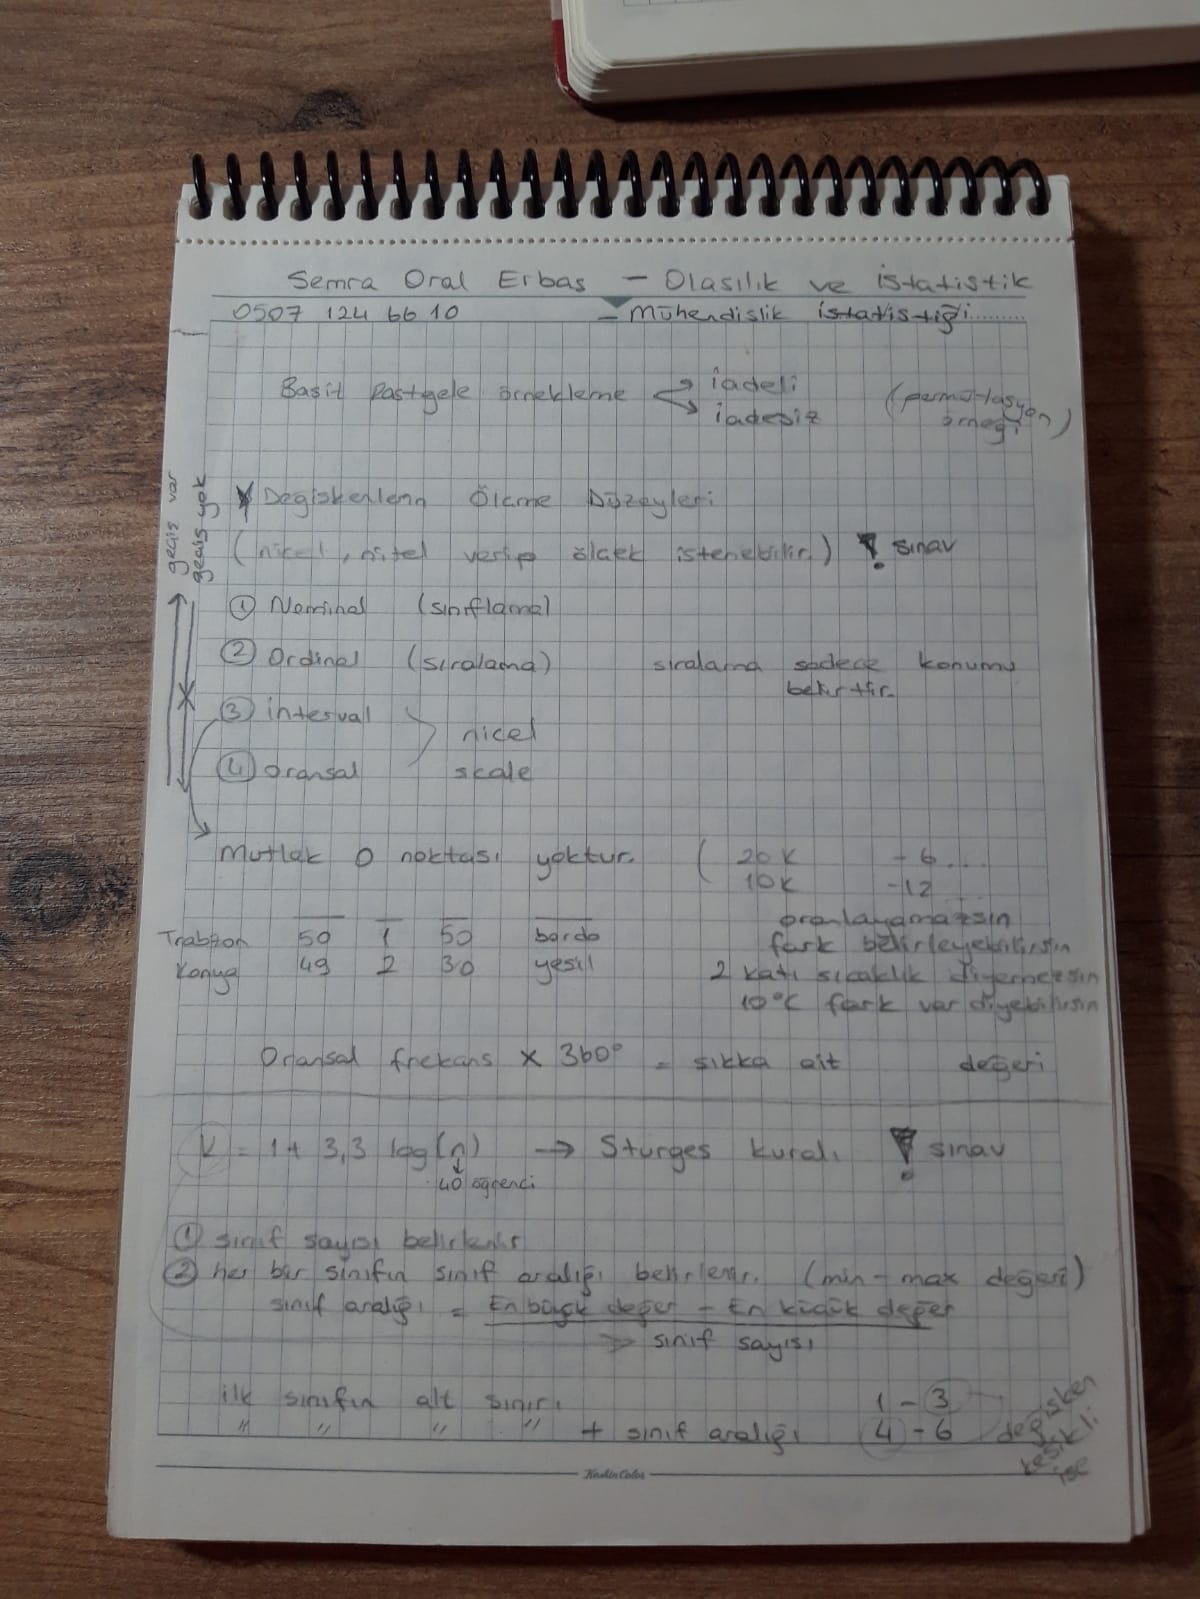 Semra Oral Erbaş - Olasılık ve İstatistik
0507 124 66 10 - Mühendislik İstatistiği
Basit Rastgele Örnekleme iadeli
iadesiz
(permütasyon örneği)
geçiş var
geçiş yok
Değişkenlerin Ölçme Düzeyleri
(nicel, nitel verip ölçek istenebilir.) ! sınav
① Nominal (sınıflama)
② Ordinal (sıralama) sıralama sadece konumu
belirtir.
③ interval
nicel
④ oransal scale
Mutlak 0 noktası yoktur. ( 20K -6...
10K -12...
oranlayamazsın
Trabzon 50 1 50 bordo fark belirleyebilirsin
Konya 49 2 30 yeşil 2 katı sıcaklık diyemezsin
10°C fark var diyebilirsin
Oransal frekans x 360° = şıkka ait değeri
K = 1 + 3,3 log(n) → Sturges kuralı ! sınav
40 öğrenci
① sınıf sayısı belirlenir
② her bir sınıfın sınıf aralığı belirlenir. (min - max değeri)
sınıf aralığı = En büyük değer - En küçük değer
sınıf sayısı
ilk sınıfın alt sınırı 1 - 3
" " " " + sınıf aralığı 4 - 6
değişken
kesikli
ise
KeskinColor